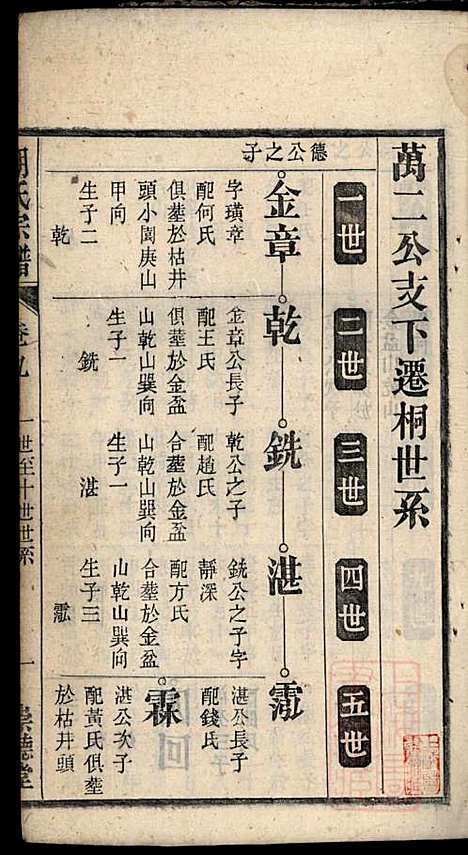 萬二公支下遷桐世系
一世
二世
三世
四世
五世
德公之子
金章
乾
銑
湛
霈
字璜章
配何氏
俱塟於枯井
頭小園庚山
甲向
生子二
乾
金章公長子
配王氏
俱塟於金盆
山乾山巽向
生子一
銑
乾公之子
配趙氏
合塟於金盆
山乾山巽向
生子一
湛
銑公之子字
靜深
配方氏
合塟於金盆
山乾山巽向
生子三
霈
湛公長子
配錢氏
霖
湛公次子
配黃氏俱塟
於枯井頭
胡氏宗譜
卷九
一世至十世世系
一
崇德堂